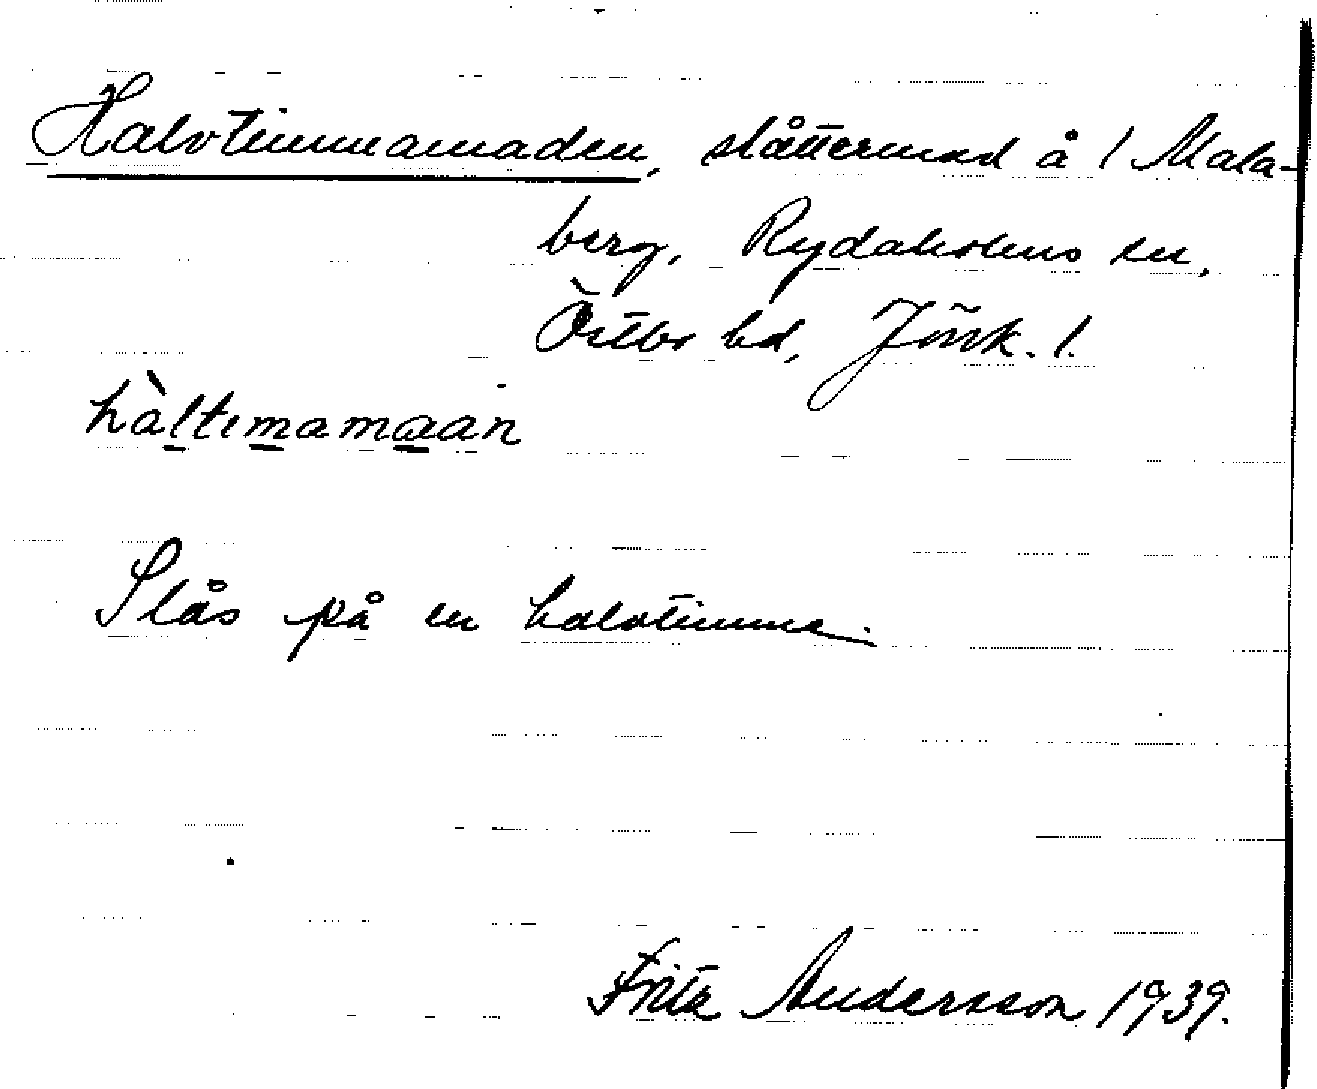 Halvtimmamaden, slåttermad å 1 Mala-
berg, Rydaholms sn,
Östbo hd, Jönk. l.
hàltimamaan
Slås på en halvtimme.
Fritz Andersson 1939.